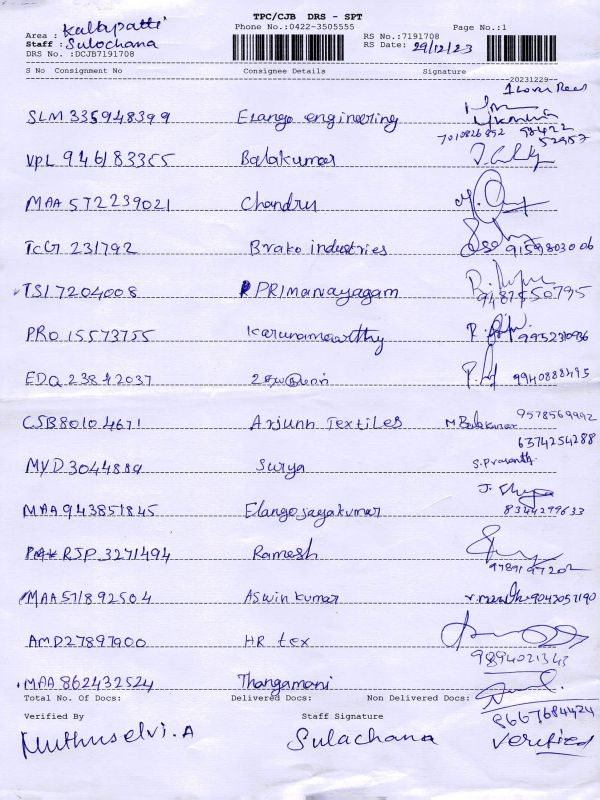 TPC/CJB DRS - SPT
Phone No.:0422-3505555 Page No.:1
Area : Kalapatti
Staff : Sulochana
DRS No. :DCJB7191708
RS No.:7191708
RS Date: 29/12/23
S No Consignment No Consignee Details Signature
20231229
SLM 335948399 Elango engineering
7010826852 98422
52957
VPL 946183355 Balakumar
MAA 572239021 Chandru
TCG 231792 Brako industries 9159803006
TSI 7204008 PRImanayagam 9487550795
PRO 15573755 Karunamoorthy 9952310936
EDQ 23842037 9940888495
CSB80104671 Arjunn Textiles M Balakumar 9578569992
6374254288
MYD 3044889 Surya S. Prasanth
MAA 943851845 Elango jayakumar 8344299633
RJP 3271494 Ramesh 9789197202
MAA 571892504 Aswin kumar 9042057190
AMD27897900 HR tex
9894021343
MAA 862432524 Thangamani
Total No. Of Docs: Delivered Docs: Non Delivered Docs:
8667684424
Verified By Staff Signature
Muthuselvi.A Sulachana Verified